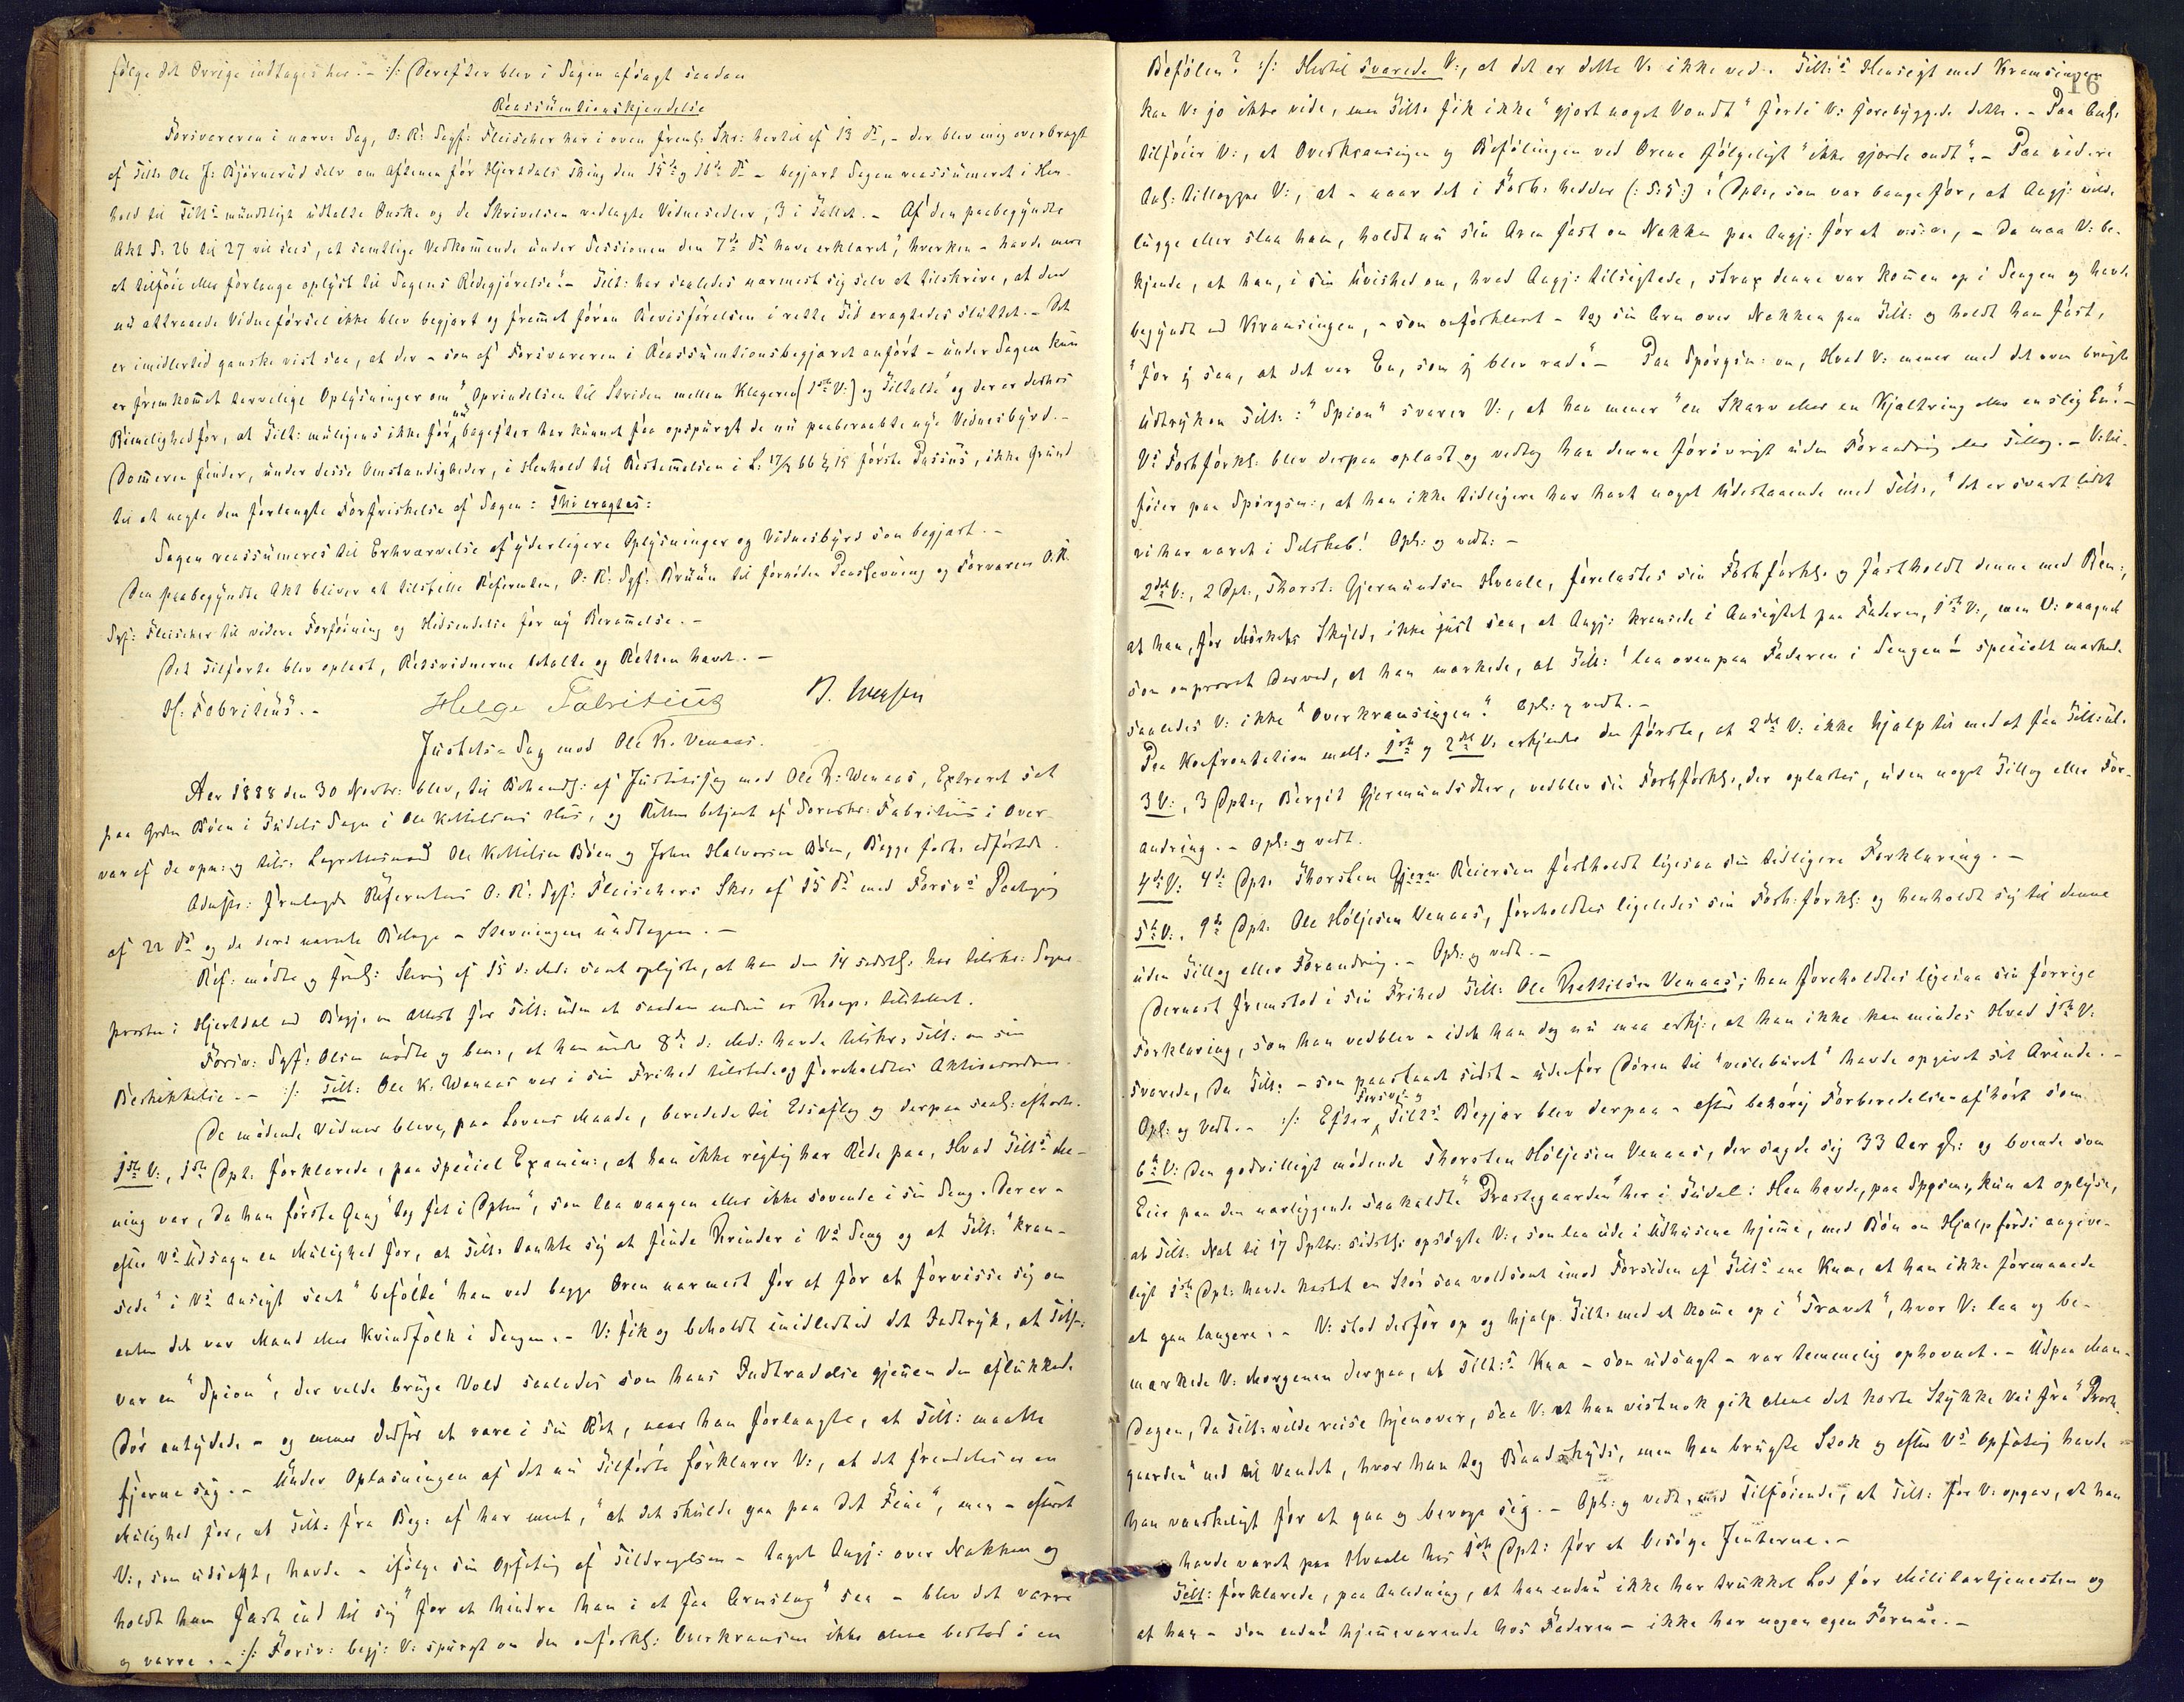 følge det Øvrige indtages her. - :/: Derefter blev i Sagen afsagt saadan
Reassumtionskjendelse
Forsvareren i nærv: Sag, O: R: Sagf: Fleischer har i oven fremlf: Skr: hertil af 13 ds, - der blev mig overbragt
af Tilt: Ole J: Bjørnerud selv om Aftenen før Hjertdals Thing den 15de og 16de ds - begjært Sagen reassumeret i Hen-
hold til Tilts mundtligt udtalte Ønske og de Skrivelsen vedlagte Vidnesedler, 3 i Tallet. - Af den paabegyndte
Akt S. 26 til 27 vil sees, at samtlige Vedkommende under Sessionen den 7de ds have erklæret, "hverken - havde mere
at tilføie eller forlange oplyst til Sagens Redegjørelse." - Tilt: har saaledes nærmest sig selv at tilskrive, at den
nu attraaede Vidneførsel ikke blev begjært og fremmet føren Bevisførelsen i rette Tid eragtedes sluttet. - Det
er imidlertid ganske vist saa, at der - som af Forsvareren i Reassumtionsbegjæret anført - under Sagen kun
er fremkommet tarvelige Oplysninger om "Oprindelsen til Striden mellem Klageren (1ste V:) og Tiltalte" og der er derhos
Rimelighed for, at Tilt: muligens ikke før bagefter har kunnet faa opspurgt de nu paaberaabte nye Vidnesbyrd. -
Dommeren finder, under disse Omstændigheder, i Henhold til Bestemmelsen i L: 17/3 66 § 15 første Passus, ikke Grund
til at negte den forlangte Forfriskelse af Sagen: Thi eragtes:
Sagen reassumeres til Erhvervelse af yderligere Oplysninger og Vidnesbyrd som begjært. -
Den paabegyndte Akt bliver at tilstille Referenten, O: R: Sgf: Bruun til fornøden Paastevning og Forsvaren O. R.
Sgf: Fleischer til videre Forføining og Hidsendelse før ny Berammelse. -
Det Tilførte blev oplæst, Retsvidnerne betalte og Retten hævet. -
H: Fabritius. - Helge Fabritius B. Iversen
Justits-Sag mod Ole K. Venaas.
Aar 1888 den 30 Novbr: blev, til Behandlf: af Justitssag mod Ole K: Wenaas, Extraret sat
paa Grdn Bøen i Tudels Sogn i Ole Kittilsens Hus, og Retten betjent af Sorenskr: Fabritius i Over-
vær af de opn: og tils: Lagrettesmænd Ole Kittilsen Bøen og John Halvorsen Bøen, Begge forh: edfæstede.
Admstr: fremlagde Referentens O: R: Sgf: Fleischers Skr: af 15 ds med Forsvs Paategn:
af 22 ds og de deri nævnte Bilage - Stevningen undtagen. -
Ref: mødte og fremlf: Stevng af 15 d: Md: samt oplyste, at han den 14 sidstlf: har tilskr: Sogne-
presten i Hjertdal med Begj: om Attest for Tilt: uden at saadan endnu er Komp: tilstillet.
Forsv: Sgf: Olsen mødte og bem:, at han under 8de d: Md: havde tilskr: Tilt: om sin
Beskikkelse. - :/: Tilt: Ole K. Wenaas var i sin Frihed tilstede og foreholdtes Aktionsordren.
De mødende Vidner bleve, paa Lovens Maade, beredede til Edsaflæg og derpaa saalf: afhørte.
1ste V:, 1ste Dpt: forklarede, paa speciel Examin:, at han ikke rigtig har Rede paa, Hvad Tilts Me-
ning var, da han første Gang "tog fat i Dptn", som laa vaagen eller ikke sovende i sin Seng. Der er -
efter Vs Udsagn en Mulighed for, at Tilt: tænkte sig at finde Kvinder i Vs Seng og at Tilt: "kran-
sede" i Vs Ansigt samt "befølte" ham ved begge Øren nærmest for at for at forvisse sig om
enten det var Mand eller Kvindfolk i Sengen. - V: fik og beholdt imidlertid det Indtryk, at Tilt:
var en "Spion", der vilde bruge Vold saaledes som hans Indtrædelse gjennem den aflukkede
Dør antydede - og mener derfor at være i sin Ret, naar han forlangte, at Tilt: maatte
fjerne sig. - Under Oplæsningen af det nu Tilførte forklarer V:, at det fremdeles er en
Mulighed for, at Tilt: fra Beg: af har ment, "at det skulde gaa paa det Fine", men - efterat
V:, som udsagt, havde - ifølge sin Opfatng af Tildragelsen - taget Angj: over Nakken og
holdt ham fast ind til sig "for at hindre ham i at faa Armslag" saa - blev det værre
og værre. - :/: Forsv: begj: V: spurgt om den omforklf: Overkransen ikke alene bestod i en
16
Befølen? :/: Hertil svarede V:, at det er dette V: ikke ved. Tilt:s Hensigt med Kransingen
kan V: jo ikke vide, men Tilt: fik ikke "gjort noget Vondt" fordi V: forebyggede dette. - Paa Anl:
tilføier V:, at Overkransingen og Befølingen ved Ørene følgeligt "ikke gjorde ondt". - Paa videre
Anl: tillægger V:, at - naar det i Forh: hedder (: S: 5 :) "Dpt:, som var bange for, at Angj: vilde
lugge eller slaa ham, holdt nu sin Arm fast om Nakken paa Angj: for at v: s: v:, - da maa V: be-
kjende, at han, i sin Uvished om, hvad Angj: tilsigtede, strax denne var kommen op i Sengen og havde
begyndt med Kransingen, - som omforklaret - tog sin Arm over Nakken paa Tilt: og holdt ham fast,
"for jeg saa, at det var En, som jeg blev ræd." - Paa Spørgsm: om, Hvad V: mener med det oven brugte
Udtrykon Tilt: : "Spion" svarer V:, at han mener "en Skarv eller en Kjæltring eller en slig En." -
Vs Forhforkl: blev derpaa oplæst og vedtog han denne forøvrigt uden Forandrg eller Tillæg. - V: til-
føier paa Spørgsm:, at han ikke tidligere har havt noget Udestaaende med Tilt:, "det er svært lidet
vi har været i Selskab! Opl: og vedt: -
2det V:, 2 Dpt:, Thorst: Gjermundsen Hvaale, forelæstes sin Forhforkl: og fastholdt denne med Bem:,
at han, for Mørkets Skyld, ikke just saa, at Angj: kransede i Ansigtet paa Faderen, 1ste V:, men V: vaagnet
som omprovet derved, at han mærkede, at Tilt: "laa ovenpaa Faderen i Sengen" - specielt mærked
saaledes V: ikke "Overkransingen." Opl: og vedt. -
Paa Konfrontation mell: 1ste og 2det V: erkjendte den første, at 2det V: ikke hjalp til med at faa Tilt: ud.
3 V:, 3 Dpt:, Bergit Gjermundsdtter, vedblev sin Forhforkl:, der oplæstes, uden noget Tillæg eller For-
andring. - Opl: og vedt.
4de V: 4de Dpt: Thorsten Gjerm Reiersen fastholdt ligesaa sin tidligere Forklaring. -
5te V:. 9de Dpt: Ole Høljesen Venaas, foreholdtes ligeledes sin Forh: forkl: og henholdt sig til denne
uden Tillæg eller Forandring. - Opl: og vedt. -
Dernæst fremstod i sin Frihed Tilt: Ole Kettilsen Venaas; han foreholdtes ligesaa sin forrige
Forklaring, som han vedblev - idet han dog nu maa erkj:, at han ikke kan mindes Hvad 1ste V:
svarede, da Tilt: - som paastaaet sidst - udenfor Døren til "vesleburet" havde opgivet sit Ærinde. -
Opl: og Vedt. - :/: Efter Forsvs og Tilts Begjær blev derpaa - efter behørig Forberedelse afhørt som
6te V: den godvilligt mødende Thorsten Høljesen Venaas, der sagde sig 33 Aar gl: og boende som
Eier paa den nærliggende saakaldte "Præstegaarden" her i Tudal: Han havde, paa Spgsm:, kun at oplyse,
at Tilt: Nat til 17 Sptbr: sidstlf: opsøgte V:, som laa ude i Udhusene hjemme, med Bøn om Hjælp fordi angive-
ligt 1ste Dpt: havde kastet en Stør saa voldsomt imod Forsiden af Tilts ene Knæ, at han ikke formaaede
at gaa længere. - V: stod derfor op og hjalp Tilt: med at komme op i "Travet", hvor V: laa og be-
mærkede V: Morgenen derpaa, at Tilt:s Knæ - som udsagt - var temmelig ophovnet. - Udpaa Man-
dagen, da Tilt: vilde reise hjemover, saa V: at han vistnok gik alene det korte Stykke Vei fra "Præste-
gaarden" ned til Vandet, hvor han tog Baadskyds, men han brugte Stok og efter Vs Opfatng havde
han vanskeligt for at gaa og bevæge sig. - Opl: og vedt: med Tilføiende, at Tilt: for V: opgav, at han
havde været paa Hvaale hos 1ste Dpt: for at besøge Jenterne. -
Tilt: forklarede, paa Anledning, at han endnu ikke har trukket Lod for Militærtjenesten og
at han - som endnu hjemmeværende hos Faderen - ikke har nogen egen Formue. -